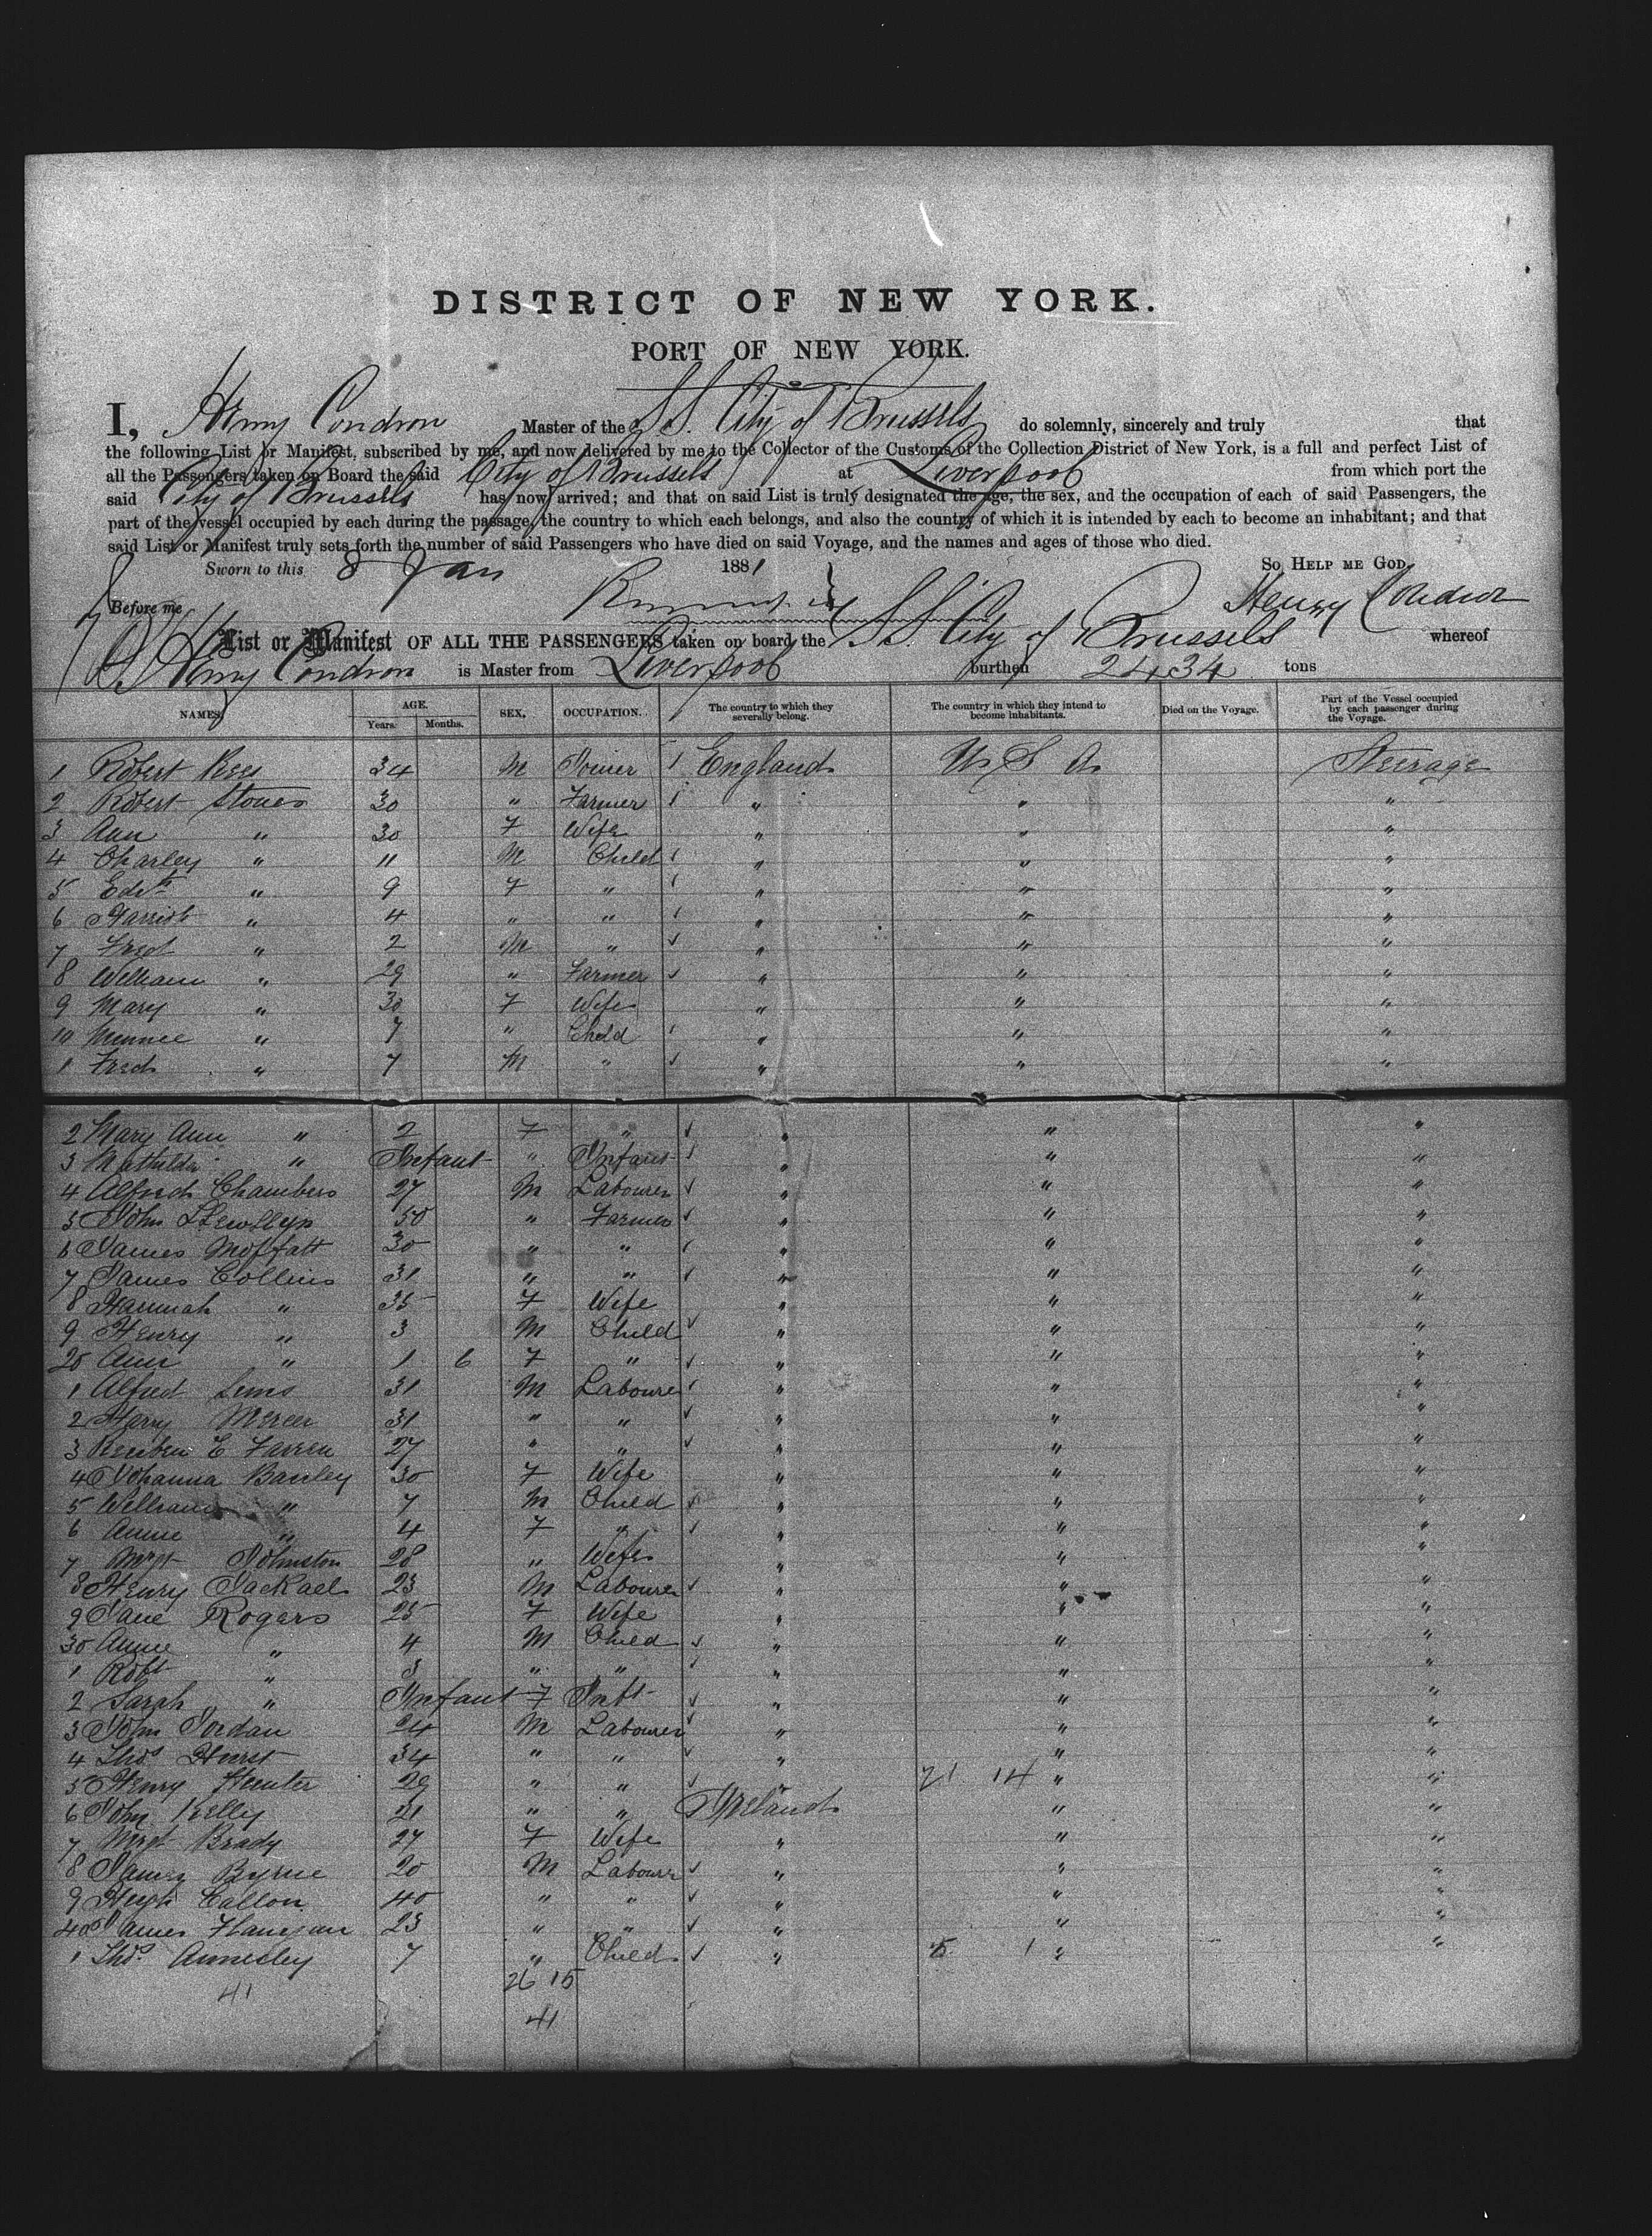 DISTRICT OF NEW YORK.
PORT OF NEW YORK.
I, Henry Condron Master of the S.S. City of Brussels do solemnly, sincerely and truly that
the following List or Manifest, subscribed by me, and now delivered by me to the Collector of the Customs of the Collection District of New York, is a full and perfect List of
all the Passengers taken on Board the said City of Brussels at Liverpool from which port the
said City of Brussels has now arrived; and that on said List is truly designated the age, the sex, and the occupation of each of said Passengers, the
part of the vessel occupied by each during the passage, the country to which each belongs, and also the country of which it is intended by each to become an inhabitant; and that
said List or Manifest truly sets forth the number of said Passengers who have died on said Voyage, and the names and ages of those who died.
Sworn to this 8 Jan 1881 So Help me God,
Before me Henry Condron
List or Manifest OF ALL THE PASSENGERS taken on board the S.S. City of Brussels whereof
Henry Condron is Master from Liverpool burthen 2434 tons
NAMES. AGE. Years. Months. SEX. OCCUPATION. The country to which they severally belong. The country in which they intend to become inhabitants. Died on the Voyage. Part of the Vessel occupied by each passenger during the Voyage.
1 Robert Rees 34 M Joiner England U S A Steerage
2 Robert Stones 30 " Farmer " " "
3 Ann " 30 F Wife " " "
4 Charley " 11 M Child " " "
5 Edith " 9 F " " " "
6 " 4 " " " " "
7 Fred " 2 M " " " "
8 William " 29 " Farmer " " "
9 Mary " 30 F Wife " " "
10 Minnie " 7 " Child " " "
1 Fred " 7 M " " " "
2 Mary Ann " 2 F " " " "
3 Mathilda " Infant " Infant " " "
4 Alfred Chambers 27 M Labourer " " "
5 John Llewllyn 50 " Farmer " " "
6 James Moffatt 30 " " " " "
7 James Collins 31 " " " " "
8 Hannah " 35 F Wife " " "
9 Henry " 3 M Child " " "
20 Ann " 1 6 F " " " "
1 Alfred Sims 31 M Labourer " " "
2 Harry Mercer 31 " " " " "
3 Reuben E 27 " " " " "
4 Johanna Banley 30 F Wife " " "
5 William " 7 M Child " " "
6 Annie " 4 F " " " "
7 Mrgt Johnston 28 " Wife " " "
8 Henry 23 M Labourer " " "
9 Jane Rogers 25 F Wife " " "
30 Annie " 4 M Child " " "
1 Robt " 3 " " " " "
2 Sarah " Infant F Inft " " "
3 John Jordan 24 M Labourer " " "
4 Thos Hurst 34 " " " " "
5 Henry Hunter 29 " " " 21 14 " "
6 John Kelly 21 " " Ireland " "
7 Mrgt Brady 27 F Wife " " "
8 James Byrne 20 M Labourer " " "
9 Hugh Callon 40 " " " " "
40 James Flanigan 23 " " " " "
1 Thos. Annesley 7 " Child " 5 1 " "
41 26 15
41